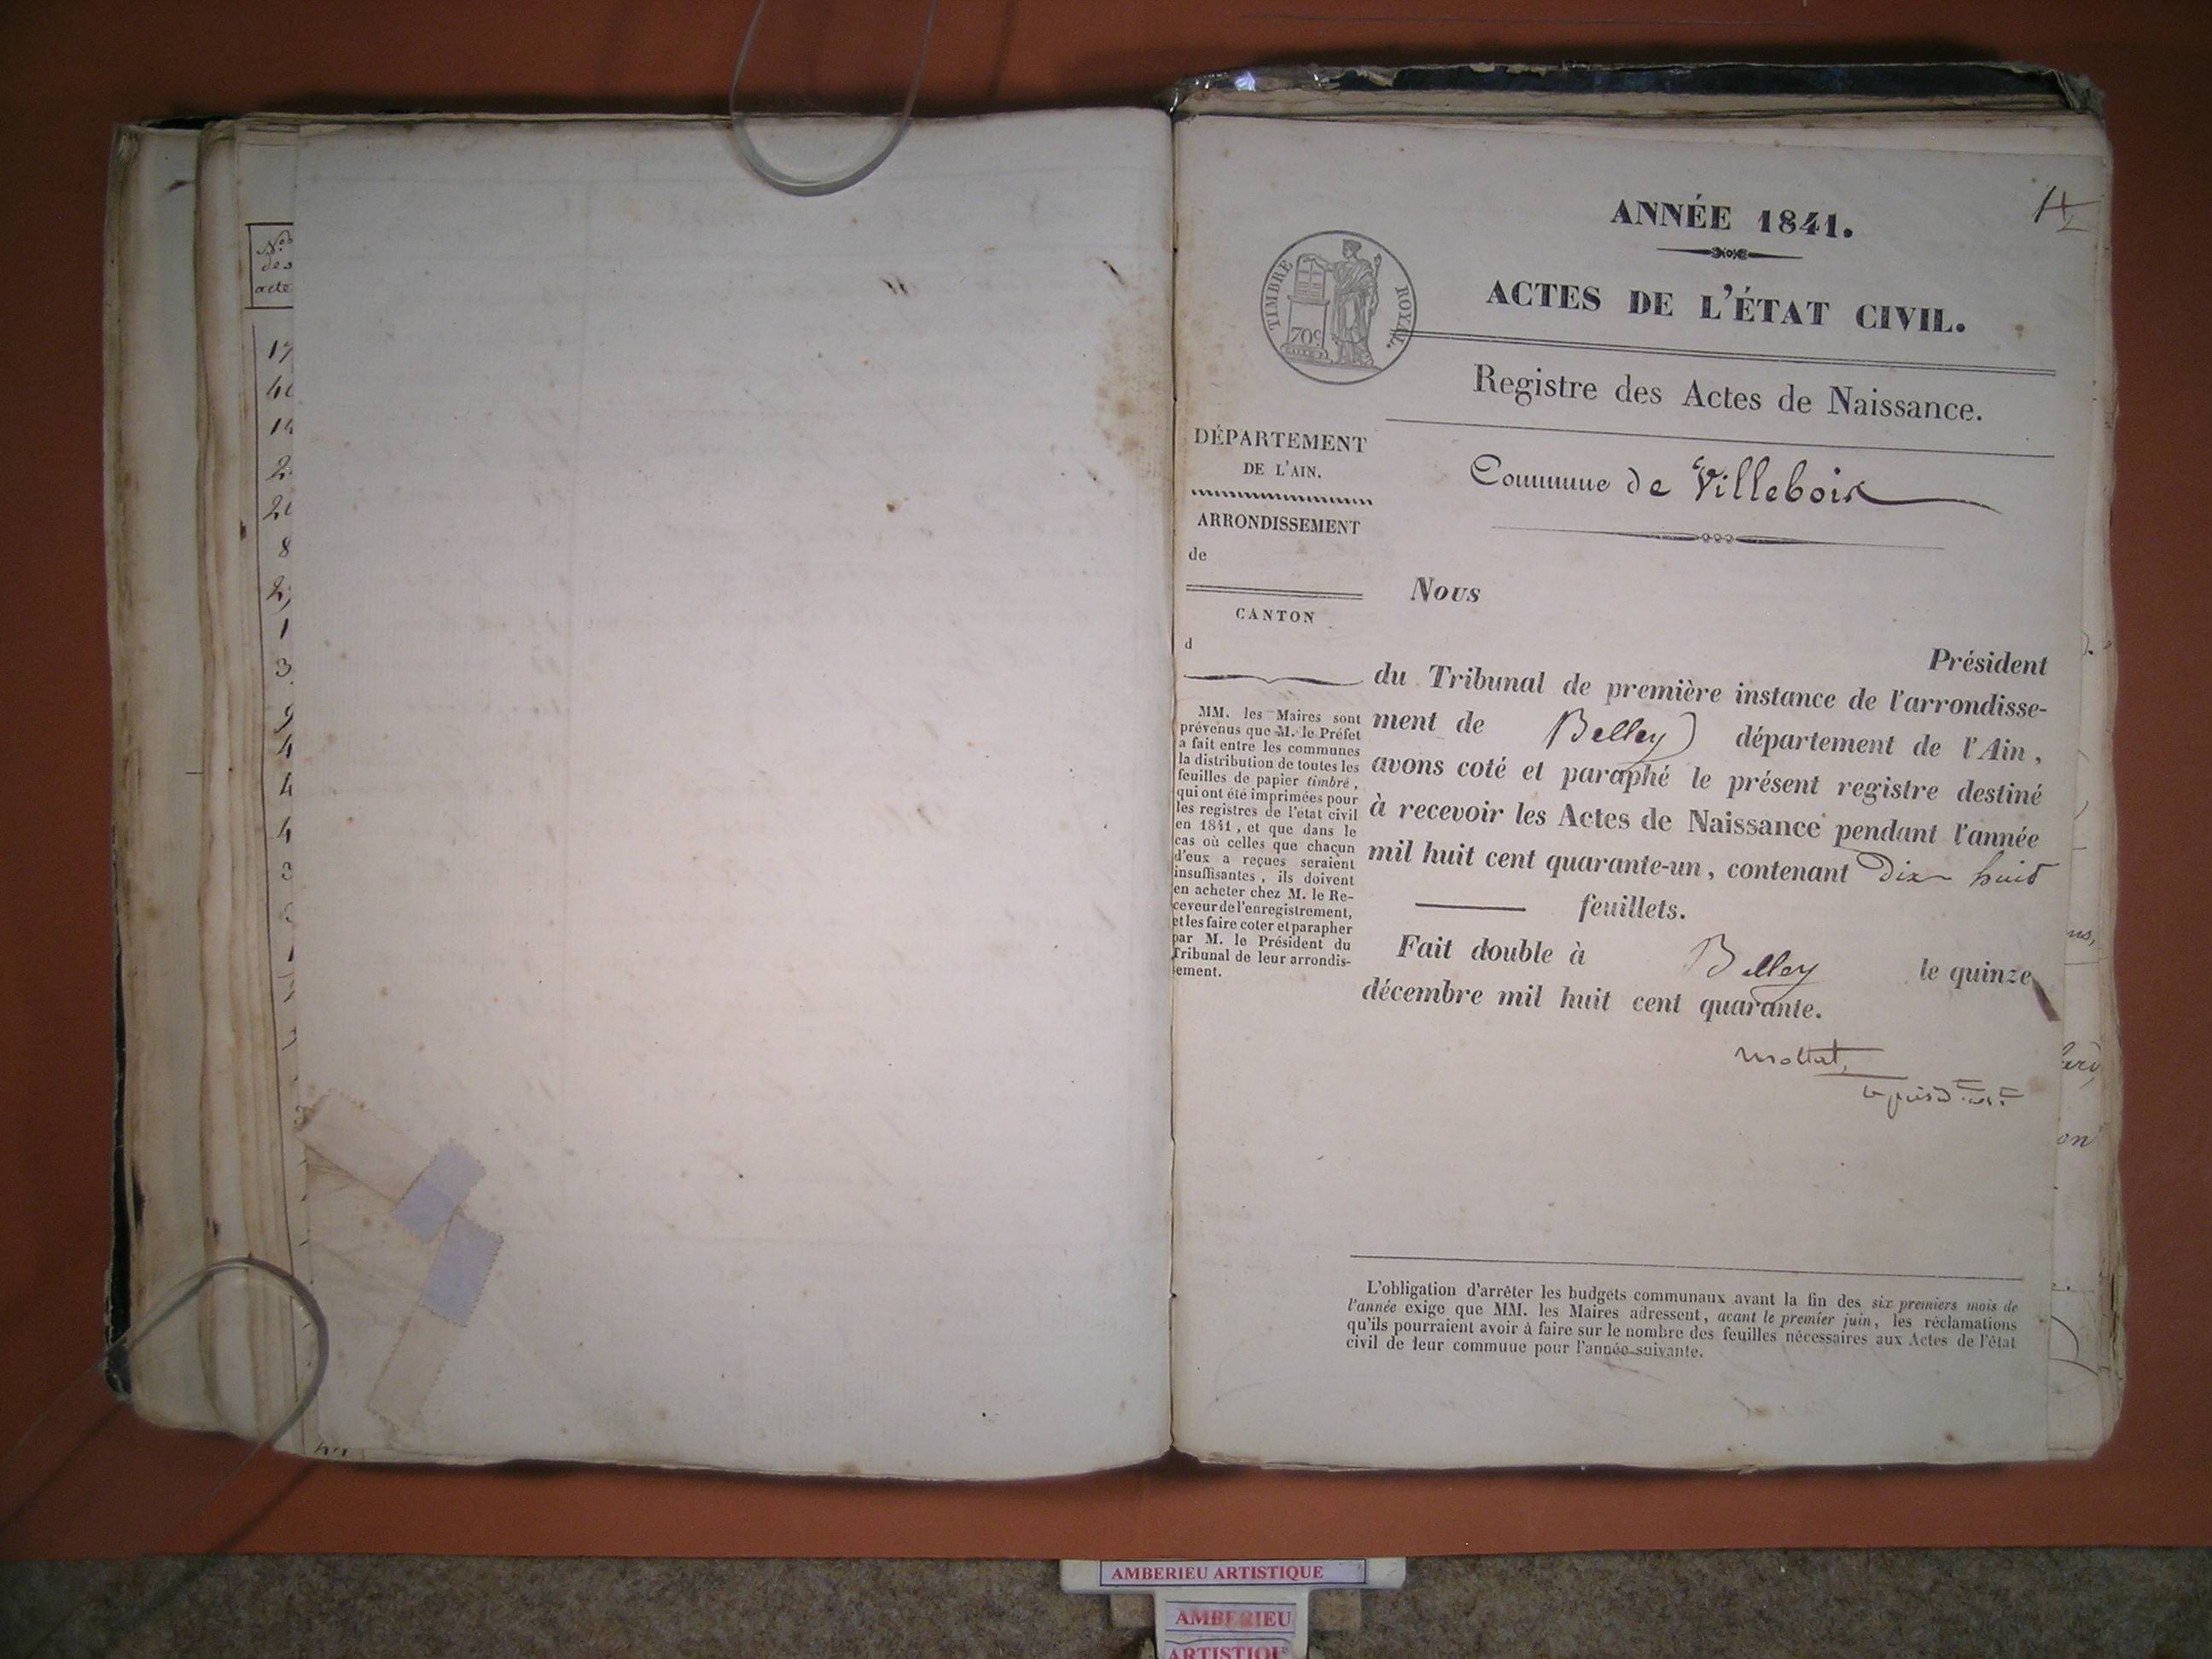 Nos
des
acte
8
1
3
4
4
4
ANNÉE 1841.
ACTES DE L'ÉTAT CIVIL.
TIMBRE ROYAL.
70c
Registre des Actes de Naissance.
Commune de Villebois
DÉPARTEMENT
DE L'AIN.
ARRONDISSEMENT
de
CANTON
d
MM. les Maires sont
prévenus que M. le Préfet
a fait entre les communes
la distribution de toutes les
feuilles de papier timbré,
qui ont été imprimées pour
les registres de l'état civil
en 1841, et que dans le
cas où celles que chacun
d'eux a reçues seraient
insuffisantes, ils doivent
en acheter chez M. le Re-
ceveur de l'enregistrement,
et les faire coter et parapher
par M. le Président du
Tribunal de leur arrondis-
sement.
Nous
Président
du Tribunal de première instance de l'arrondisse-
ment de Belley département de l'Ain,
avons coté et paraphé le présent registre destiné
à recevoir les Actes de Naissance pendant l'année
mil huit cent quarante-un, contenant Dix huit
feuillets.
Fait double à Belley le quinze
décembre mil huit cent quarante.
L'obligation d'arrêter les budgets communaux avant la fin des six premiers mois de
l'année exige que MM. les Maires adressent, avant le premier juin, les réclamations
qu'ils pourraient avoir à faire sur le nombre des feuilles nécessaires aux Actes de l'état
civil de leur commune pour l'année suivante.
AMBERIEU ARTISTIQUE
AMBERIEU
ARTISTIQU